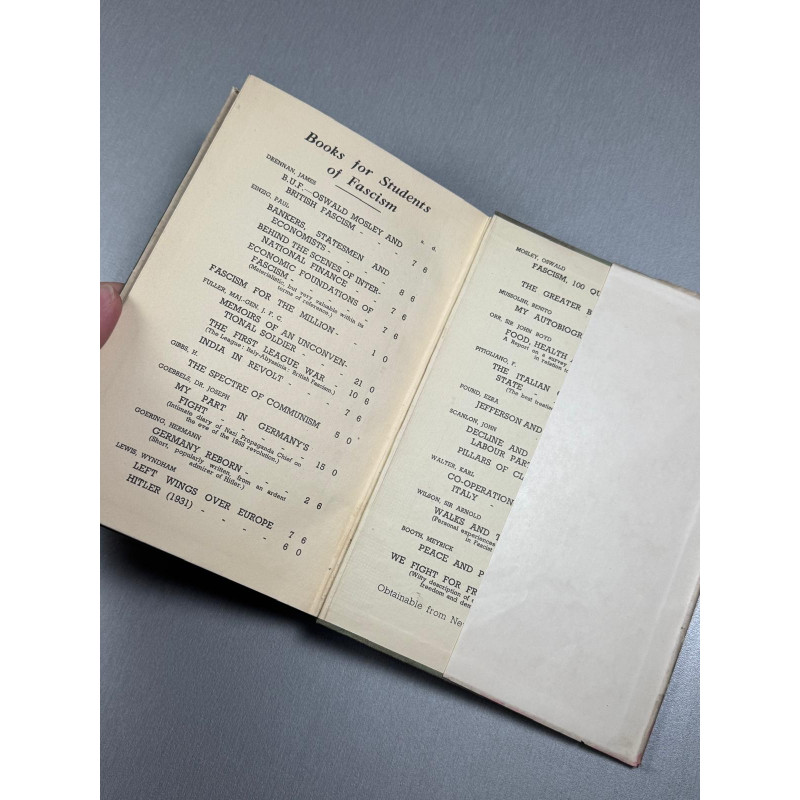 Books for Students
of Fascism
s. d.
DRENNAN, JAMES
B.U.F.—OSWALD MOSLEY AND
BRITISH FASCISM - - - 7 6
EINZIG, PAUL
BANKERS, STATESMEN AND
ECONOMISTS - - - - 8 6
BEHIND THE SCENES OF INTER-
NATIONAL FINANCE - - 7 6
ECONOMIC FOUNDATIONS OF
FASCISM - - - - - 7 6
(Materialistic, but very valuable within its
terms of reference.)
FASCISM FOR THE MILLION - - 1 0
FULLER, MAJ.-GEN. J. F. C.
MEMOIRS OF AN UNCONVEN-
TIONAL SOLDIER - - - 21 0
THE FIRST LEAGUE WAR - 10 6
(The League: Italy-Abyssinia: British Fascism.)
INDIA IN REVOLT - - - 7 6
GIBBS, H.
THE SPECTRE OF COMMUNISM 5 0
GOEBBELS, DR. JOSEPH
MY PART IN GERMANY'S
FIGHT - - - - - 15 0
(Intimate diary of Nazi Propaganda Chief on
the eve of the 1933 revolution.)
GOERING, HERMANN
GERMANY REBORN - - - 2 6
(Short, popularly written, from an ardent
admirer of Hitler.)
LEWIS, WYNDHAM
LEFT WINGS OVER EUROPE 7 6
HITLER (1931) - - - - 6 0
MOSLEY, OSWALD
FASCISM, 100 QU
THE GREATER B
MUSSOLINI, BENITO
MY AUTOBIOGR
ORR, SIR JOHN BOYD
FOOD, HEALTH
A Report on a survey
in relation t
PITIGLIANI, F.
THE ITALIAN C
STATE -
(The best treatise
POUND, EZRA
JEFFERSON AND
SCANLON, JOHN
DECLINE AND
LABOUR PART
PILLARS OF CL
WALTER, KARL
CO-OPERATION
ITALY -
WILSON, SIR ARNOLD
WALKS AND T
(Personal experiences
in Fascist
BOOTH, MEYRICK
PEACE AND P
WE FIGHT FOR FR
(Witty description of
freedom and den
Obtainable from New